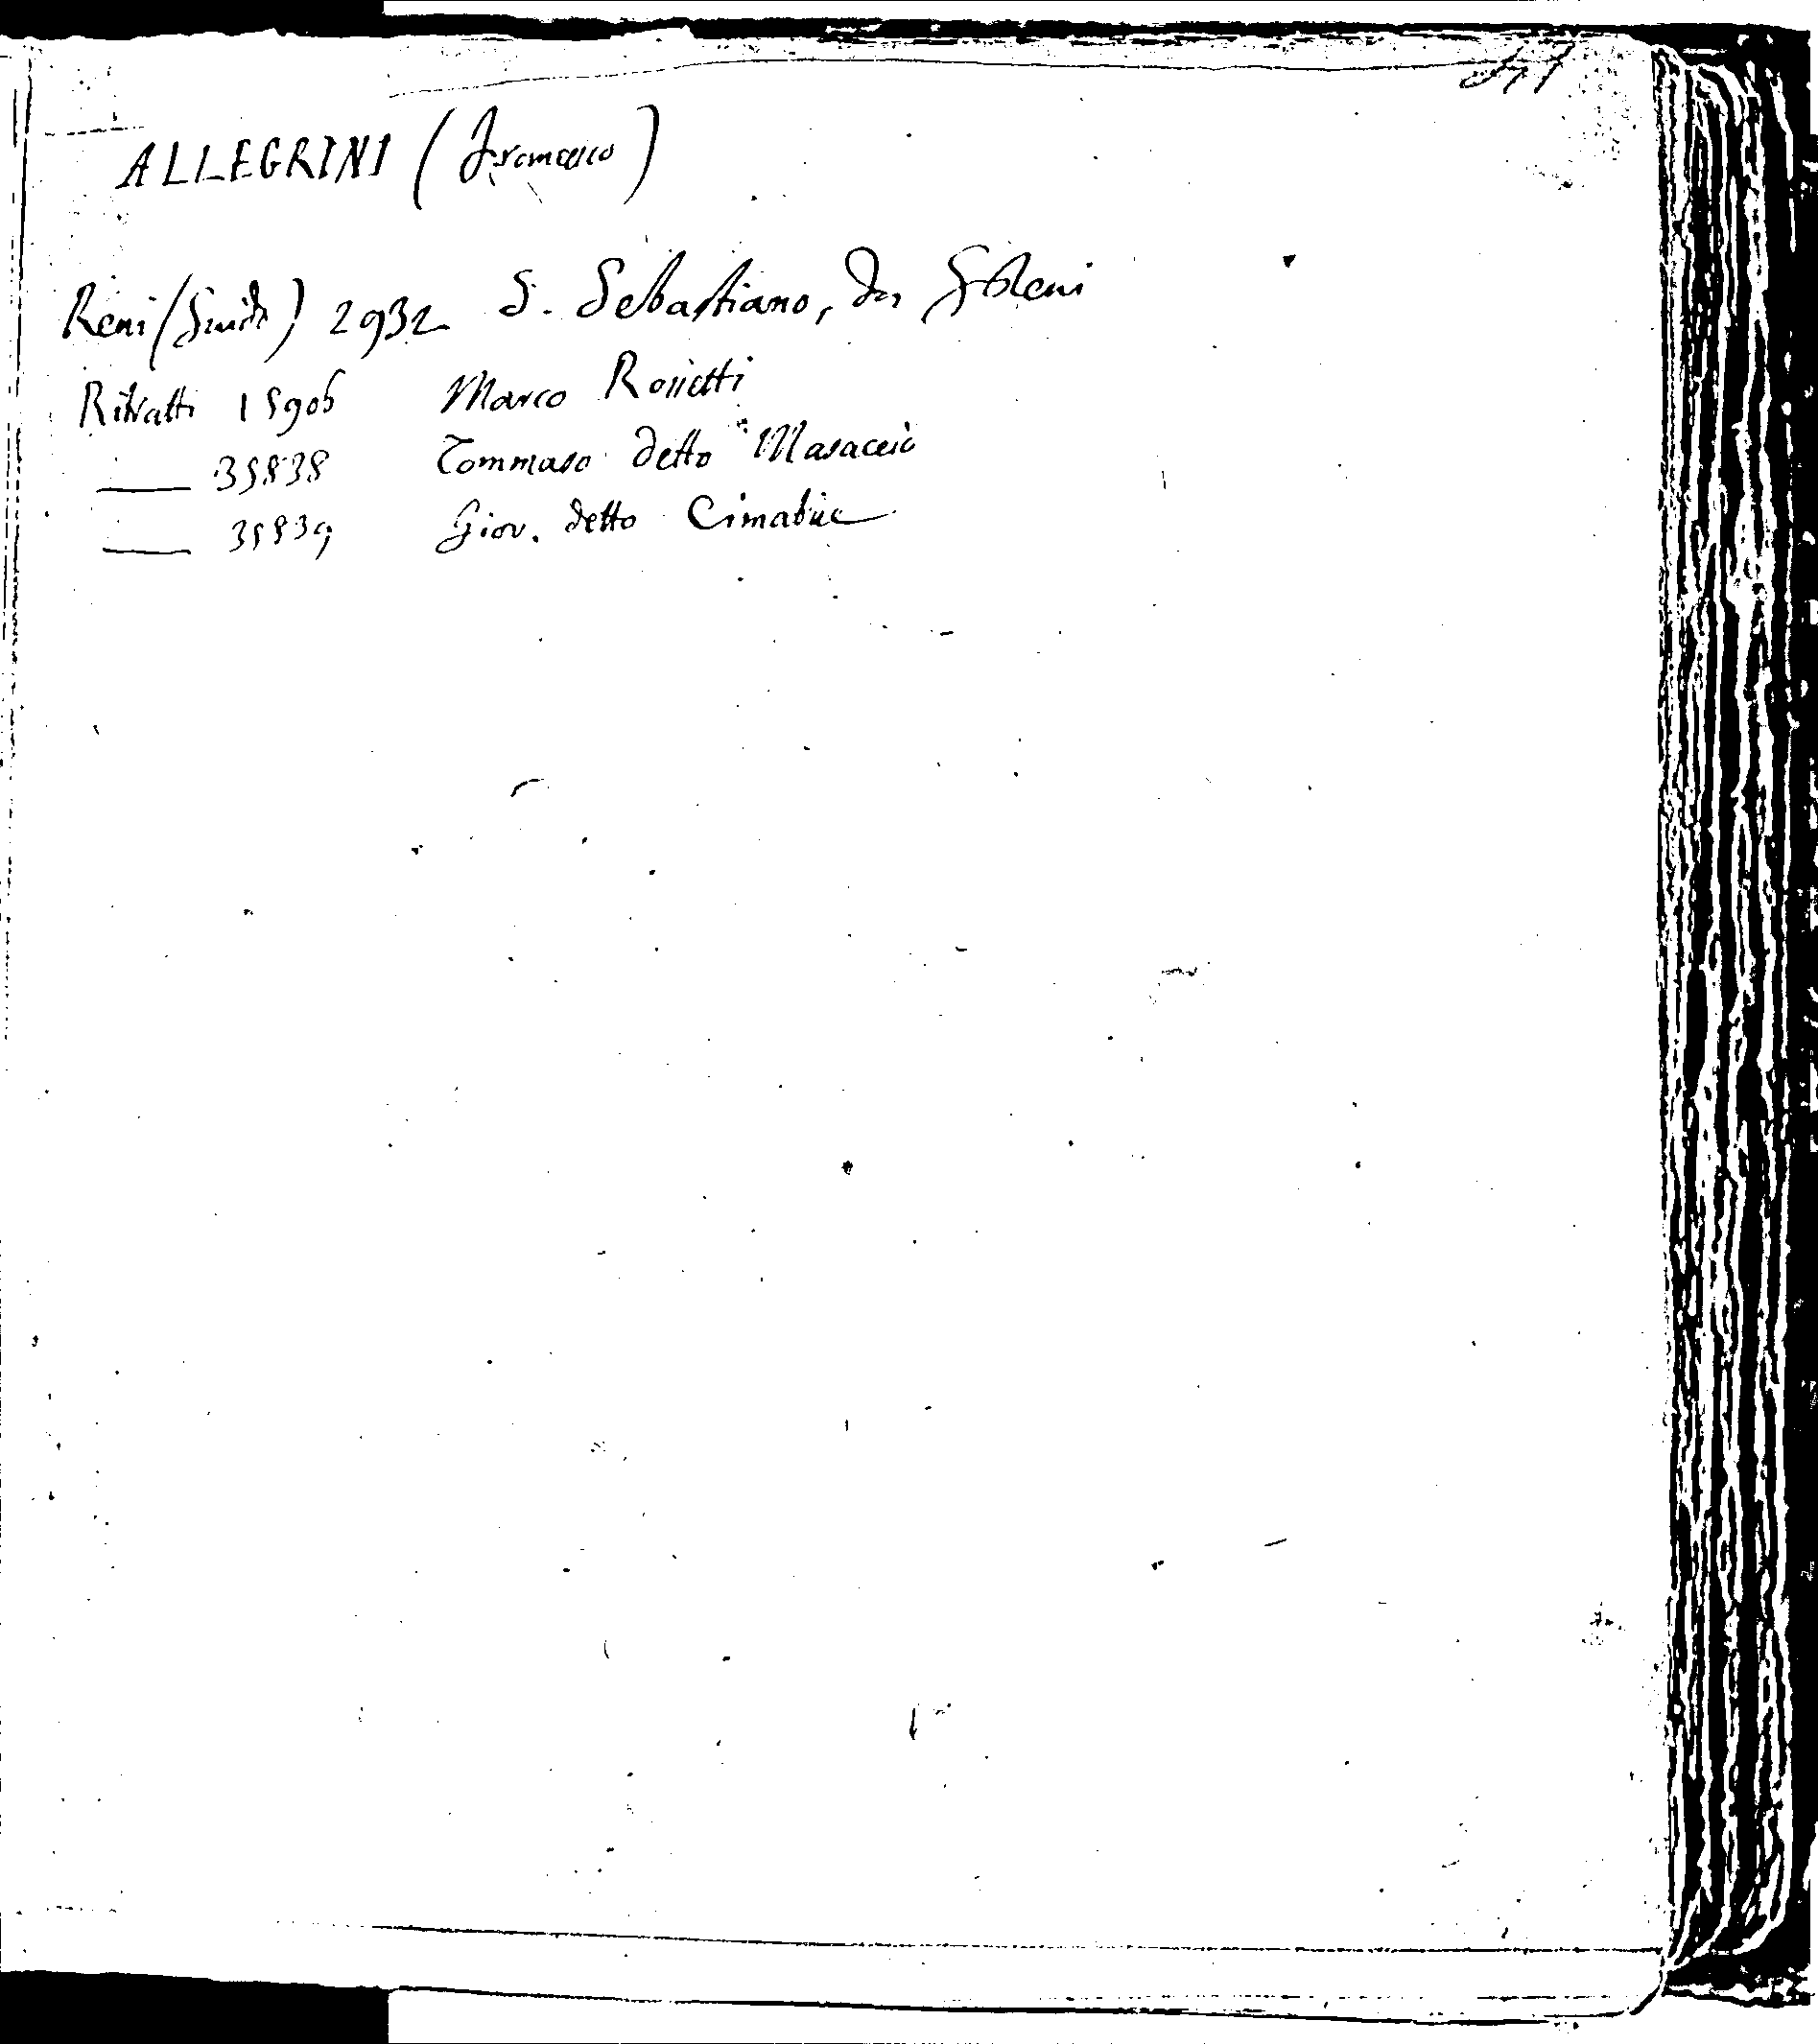 ALLEGRINI (Francesco)
Reni (Guido) 2932 S. Sebastiano, da G Reni
Ritratti 15906 Marco Rossetti
—— 35838 Tommaso detto Masaccio
—— 35839 Giov. detto Cimabue